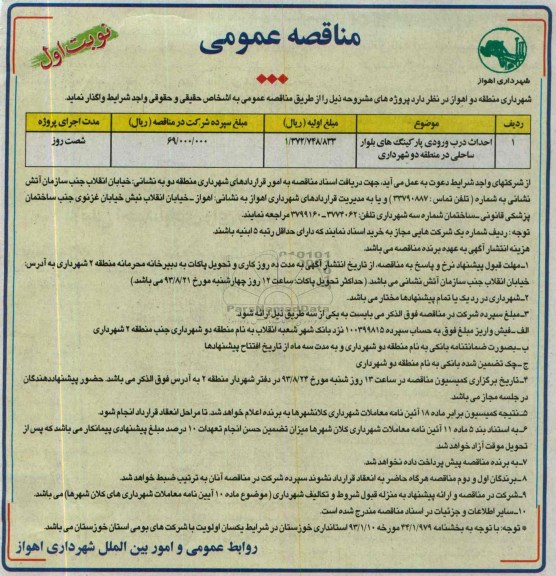 مناقصه عمومی
نوبت اول
شهرداری اهواز
شهرداری منطقه دو اهواز در نظر دارد پروژه های مشروحه ذیل را از طریق مناقصه عمومی به اشخاص حقیقی و حقوقی واجد شرایط واگذار نماید.
ردیف موضوع مبلغ اولیه (ریال) مبلغ سپرده شرکت در مناقصه (ریال) مدت اجرای پروژه
۱ احداث درب ورودی پارکینگ های بلوار ۱/۳۷۲/۷۴۸/۸۳۳ ۶۹/۰۰۰/۰۰۰ شصت روز
ساحلی در منطقه دو شهرداری
از شرکتهای واجد شرایط دعوت به عمل می آید، جهت دریافت اسناد مناقصه به امور قراردادهای شهرداری منطقه دو به نشانی: خیابان انقلاب جنب سازمان آتش
نشانی به شماره ( تلفن تماس : ۳۳۷۹۰۸۸۷ ) و یا به مدیریت قراردادهای شهرداری اهواز به نشانی: اهواز – خیابان انقلاب نبش خیابان غزنوی جنب ساختمان
پزشکی قانونی – ساختمان شماره سه شهرداری تلفن: ۳۷۷۳۰۶۲ - ۳۷۹۹۱۶۰ مراجعه نمایند.
توجه : ردیف شماره یک شرکت هایی مجاز به خرید اسناد نمایند که دارای حداقل رتبه ۵ ابنیه باشند.
هزینه انتشار آگهی به عهده برنده مناقصه می باشد.
۱- مهلت قبول پیشنهاد نرخ و پاسخ به مناقصه، از تاریخ انتشار آگهی به مدت ده روز کاری و تحویل پاکات به دبیرخانه محرمانه منطقه ۲ شهرداری به آدرس:
خیابان انقلاب جنب سازمان آتش نشانی می باشد. ( حداکثر تحویل پاکات: ساعت ۱۲ روز چهارشنبه مورخ ۹۳/۸/۲۱ می باشد.)
۲- شهرداری در رد یک یا تمام پیشنهادها مختار می باشد.
۳- مبلغ سپرده شرکت در مناقصه فوق الذکر می بایست به یکی از سه طریق ذیل ارائه شود.
الف - فیش واریز مبلغ فوق به حساب سپرده ۱۰۰۳۹۹۸۱۵ نزد بانک شهر شعبه انقلاب به نام منطقه دو شهرداری جنب منطقه ۲ شهرداری
ب – بصورت ضمانتنامه بانکی به نام منطقه دو شهرداری و به مدت سه ماه از تاریخ افتتاح پیشنهادها
ج – چک تضمین شده بانکی به نام منطقه دو شهرداری
۴- تاریخ برگزاری کمیسیون مناقصه در ساعت ۱۳ روز شنبه مورخ ۹۳/۸/۲۴ در دفتر شهردار منطقه ۲ به آدرس فوق الذکر می باشد. حضور پیشنهاددهندگان
در جلسه مجاز می باشد.
۵- نتیجه کمیسیون برابر ماده ۱۸ آئین نامه معاملات شهرداری کلانشهرها به برنده اعلام خواهد شد. تا مراحل انعقاد قرارداد انجام شود.
۶- به استناد بند ۵ ماده ۱۱ آئین نامه معاملات شهرداری کلان شهرها میزان تضمین حسن انجام تعهدات ۱۰ درصد مبلغ پیشنهادی پیمانکار می باشد که پس از
تحویل موقت آزاد خواهد شد.
۷- به برنده مناقصه پیش پرداخت داده نخواهد شد.
۸- برندگان اول و دوم مناقصه هرگاه حاضر به انعقاد قرارداد نشوند سپرده شرکت در مناقصه آنان به ترتیب ضبط خواهد شد.
۹- شرکت در مناقصه و ارائه پیشنهاد به منزله قبول شروط و تکالیف شهرداری ( موضوع ماده ۱۰ آیین نامه معاملات شهرداری های کلان شهرها) می باشد.
۱۰- سایر اطلاعات و جزئیات در اسناد مناقصه مندرج شده است.
* توجه: با توجه به بخشنامه ۴۴/۱/۹۷۹ مورخه ۹۳/۱/۱۰ استانداری خوزستان در شرایط یکسان اولویت با شرکت های بومی استان خوزستان می باشد.
روابط عمومی و امور بین الملل شهرداری اهواز